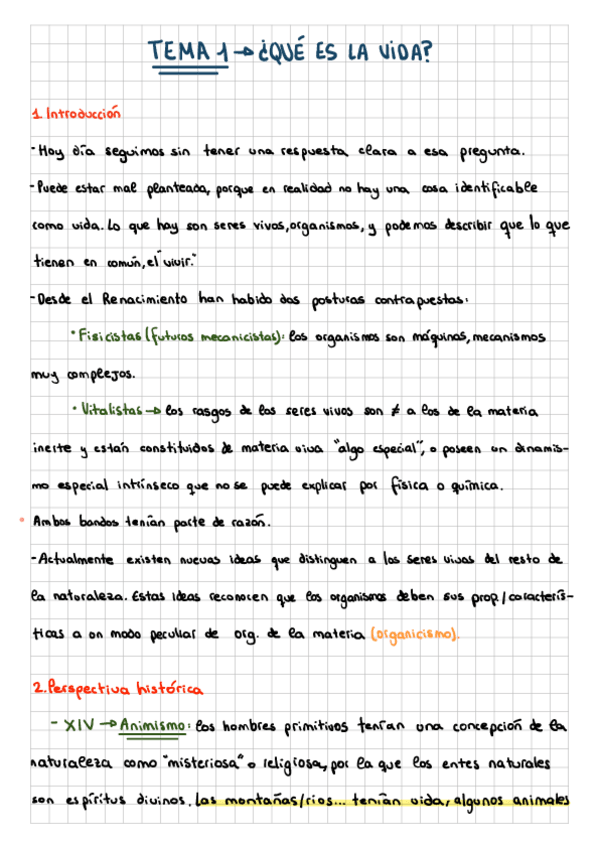 TEMA 1 → ¿QUÉ ES LA VIDA?
1. Introducción
- Hoy día seguimos sin tener una respuesta clara a esa pregunta.
- Puede estar mal planteada, porque en realidad no hay una cosa identificable
como vida. Lo que hay son seres vivos, organismos, y podemos describir que lo que
tienen en común, el "vivir."
- Desde el Renacimiento han habido dos posturas contrapuestas:
· Fisicistas (futuros mecanicistas): los organismos son máquinas, mecanismos
muy complejos.
· Vitalistas → los rasgos de los seres vivos son ≠ a los de la materia
inerte y están constituidos de materia viva "algo especial", o poseen un dinamis-
mo especial intrínseco que no se puede explicar por física o química.
• Ambos bandos tenían parte de razón.
- Actualmente existen nuevas ideas que distinguen a los seres vivos del resto de
la naturaleza. Estas ideas reconocen que los organismos deben sus prop./caracterís-
ticas a un modo peculiar de org. de la materia (organicismo).
2. Perspectiva histórica
- XIV → Animismo: los hombres primitivos tenían una concepción de la
naturaleza como "misteriosa" o religiosa, por la que los entes naturales
son espíritus divinos. Las montañas/rios... tenían vida, algunos animales